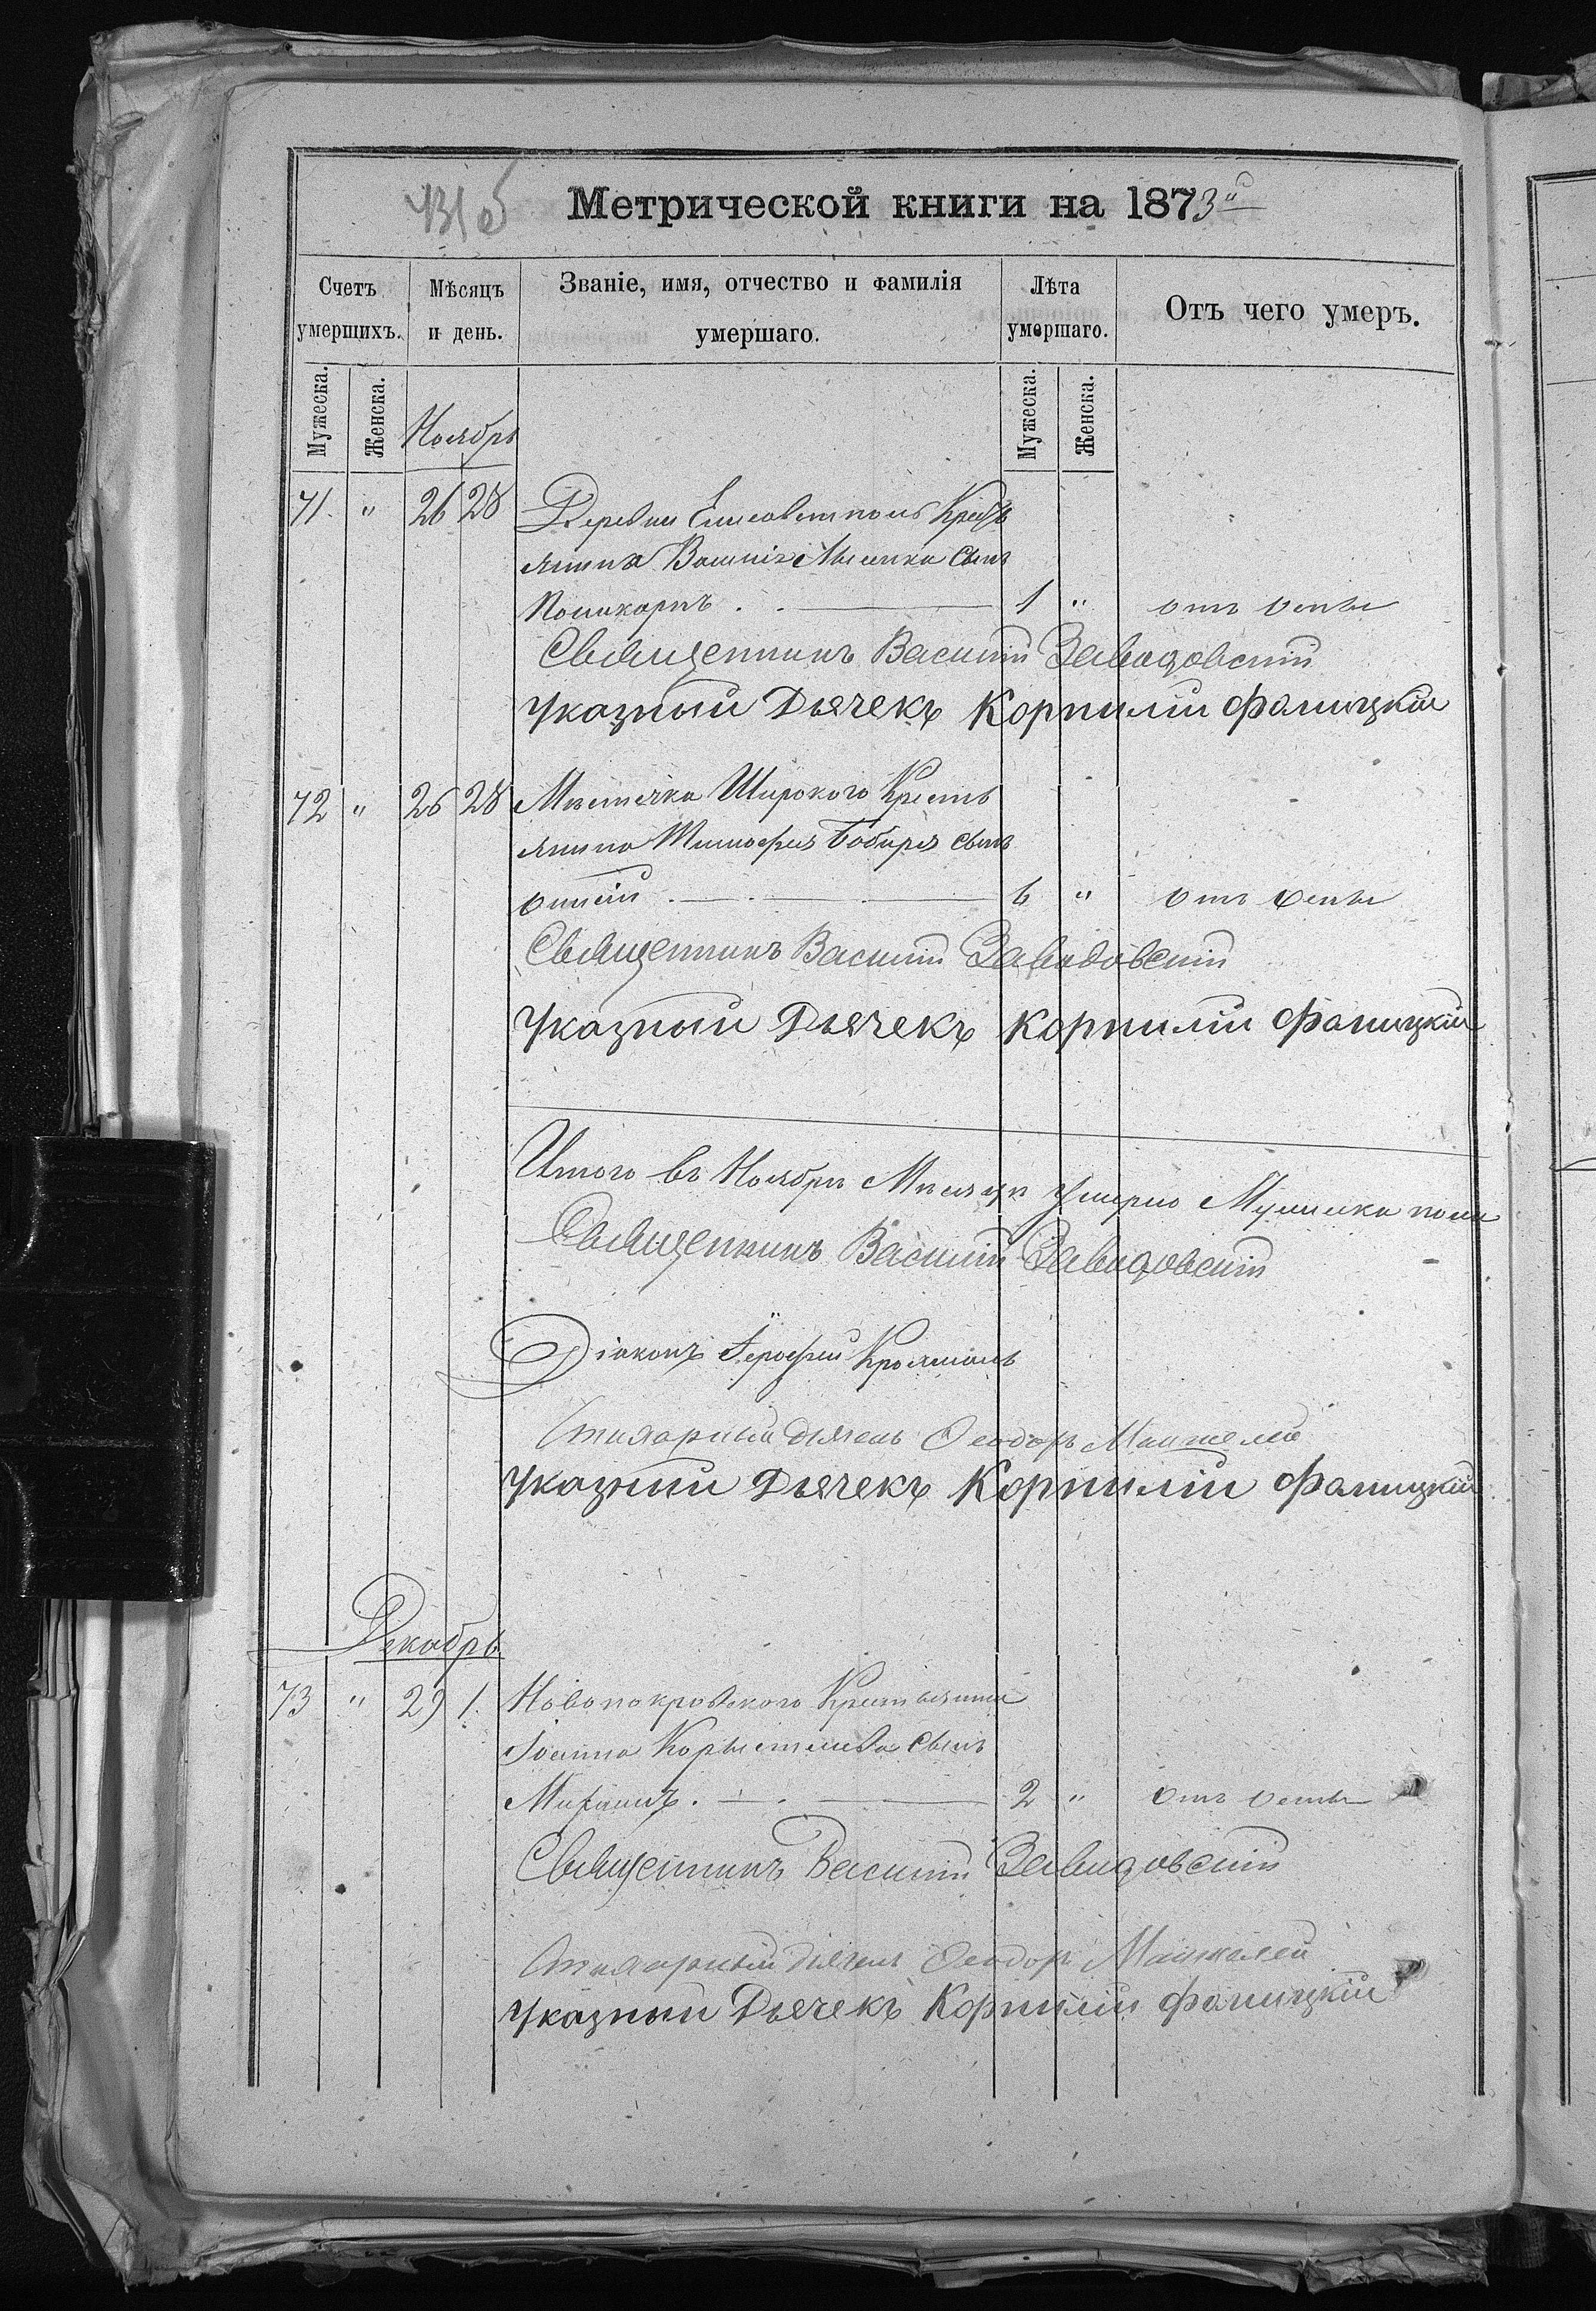 Метрической книги на 1873й
Счетъ умершихъ.
Мѣсяцъ и день.
Званіе, имя, отчество и фамилія умершаго.
Лѣта умершаго.
Отъ чего умеръ.
Мужеска. Женска. Ноябрь Мужеска. Женска.
71. " 26 28 Деревни Елисаветполь Кресть
янина сынъ
Поликарпъ . . 1 " отъ оспы
Священникъ Василій Завадовскій
Указный Дьячекъ Корнилій Фаницкій
72 " 26 28 Мѣстечка Широкого Кресть
янина Тимофея Бобиря сынъ
6 " отъ оспы
Священникъ Василій Завадовскій
Указный Дьячекъ Корнилій Фаницкій
Итого въ Ноябрѣ Мѣсяцѣ умерло Мужеска пола
Священникъ Василій Завадовскій
Діаконъ
Стихарный дьячекъ Ѳеодоръ
Указный Дьячекъ Корнилій Фаницкій
Декабрь.
73 " 29 1. Новопокровского Крестьянина
Іоанна сынъ
Михаилъ. 2 " отъ оспы
Священникъ Василій Завадовскій
Стихарный дьячекъ Ѳеодоръ
Указный Дьячекъ Корнилій Фаницкій